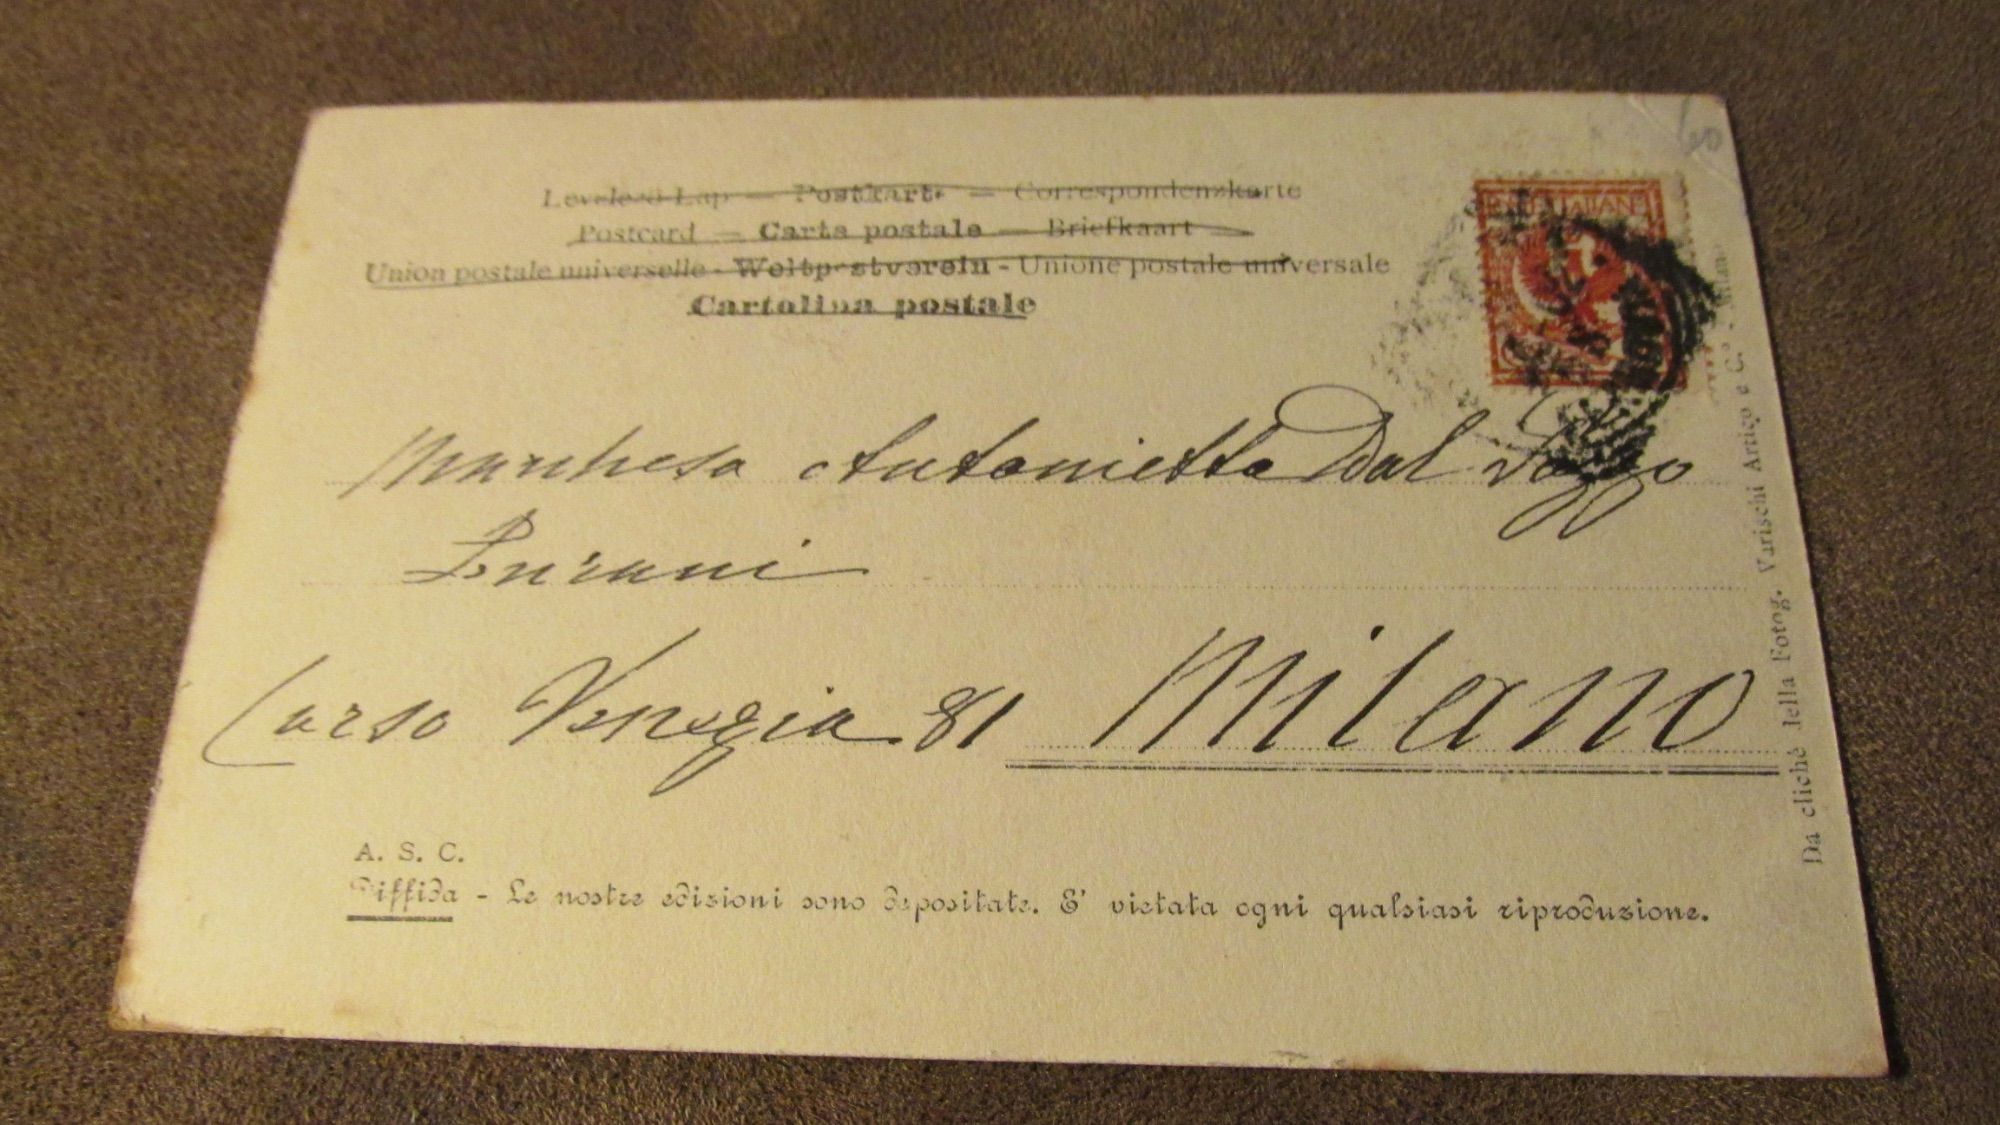 Levelező-Lap — Postkarte — Correspondenzkarte
Postcard — Carte postale — Briefkaart
Union postale universelle - Weltpostverein - Unione postale universale
Cartolina postale
POSTE ITALIANE
Marchesa Antonietta Dal Pozzo
Corso Venezia 81 Milano
A. S. C.
Diffida - Le nostre edizioni sono depositate. E' vietata ogni qualsiasi riproduzione.
Da clichè della Fotog. Varischi Artico e C. Milano